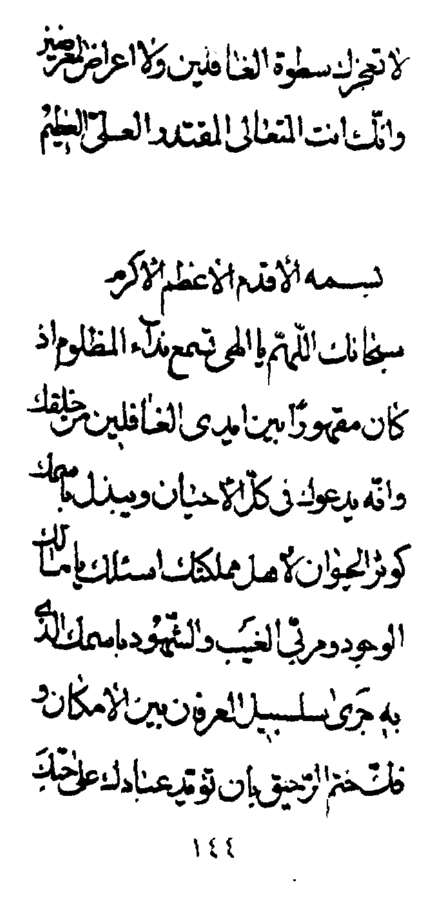 لا تعجزك سطوة الغافلين ولا اعراض المعرضين
وانّك انت المتعالى المقتدر العلىّ العظيم
بسمه الأقدم الاعظم الاكرم
سبحانك اللّهمّ يا الهى تسمع ندآء المظلوم اذ
كان مقهورًا بين ايدى الغافلين من خلقك
وانّه يدعوك فى كلّ الأحيان ويبذل باسمك
كوثر الحيوان لأهل مملكتك اسئلك يا مالك
الوجود ومربّى الغيب والشّهود باسمك الّذى
به جرى سلسبيل العرفان بين الأمكان و
فكّ ختم الرّحيق بأن توقد عبادك على حبّك
١٤٤